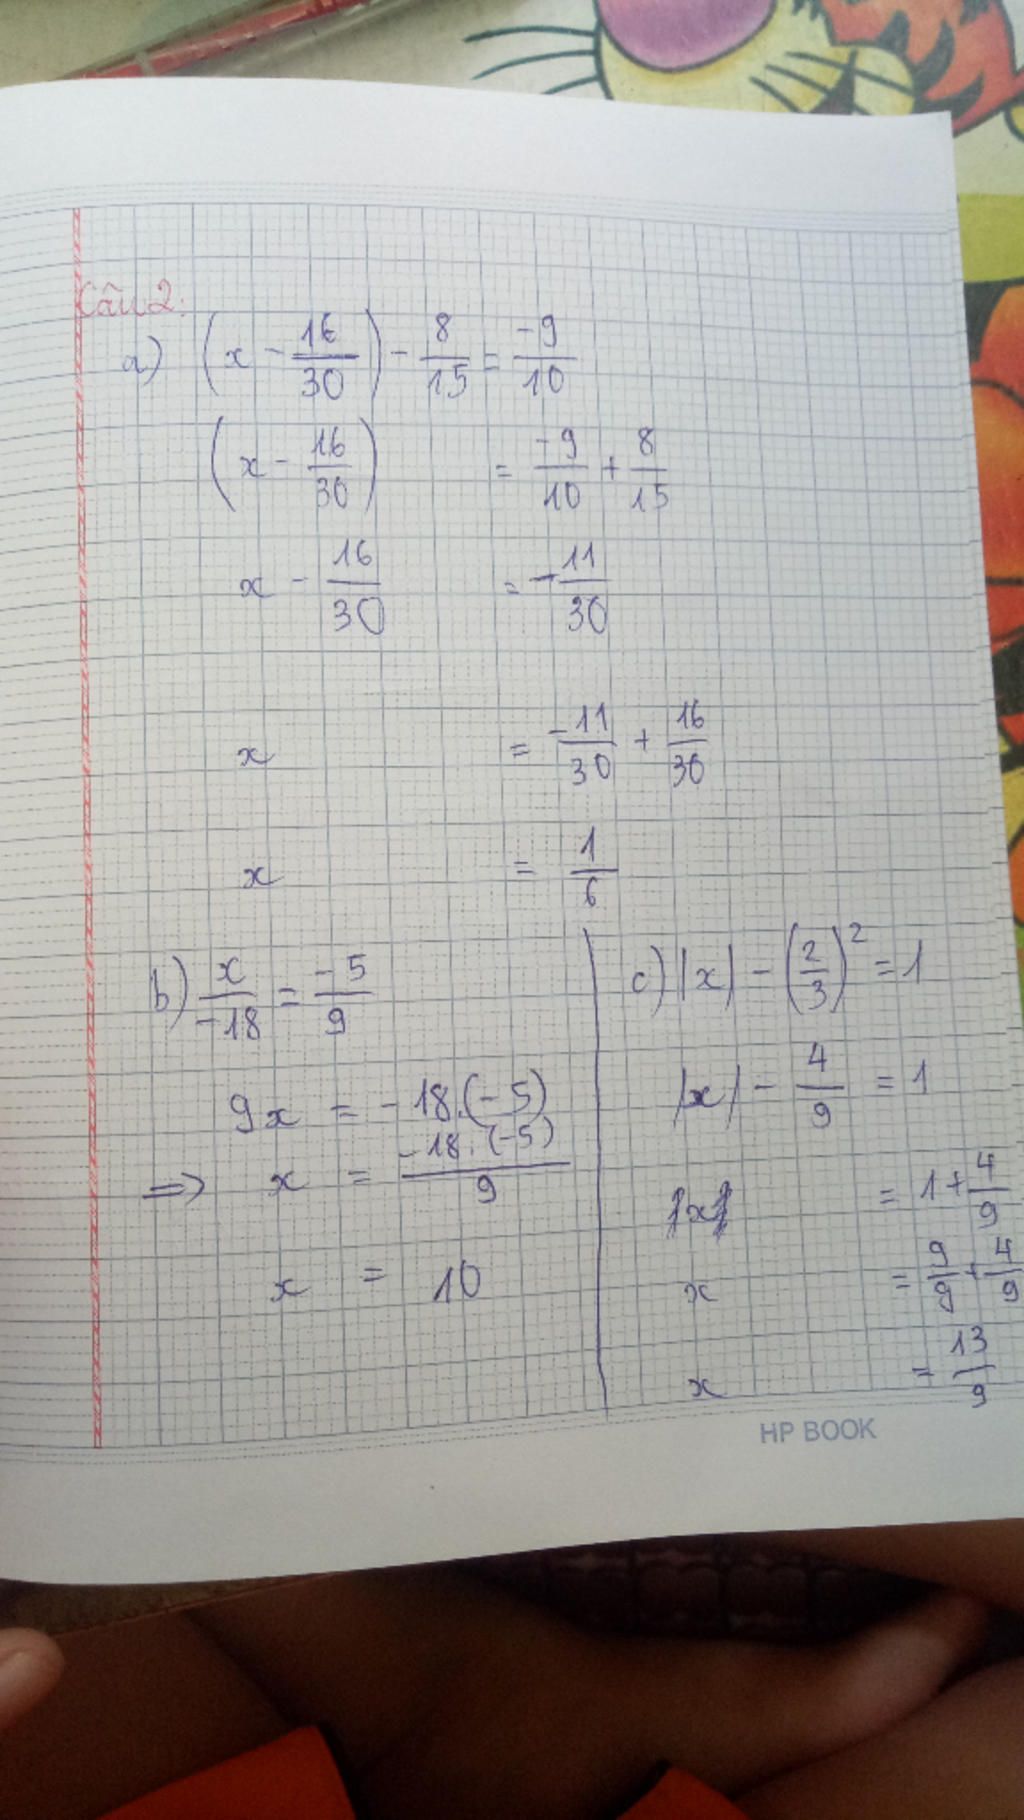 Câu 2:
a) (x - 16/30) - 8/15 = -9/10
(x - 16/30) = -9/10 + 8/15
x - 16/30 = -11/30
x = -11/30 + 16/30
x = 1/6
b) x/-18 = -5/9
9x = -18.(-5)
=> x = -18.(-5)/9
x = 10
c) |x| - (2/3)² = 1
|x| - 4/9 = 1
|x| = 1 + 4/9
x = 9/9 + 4/9
x = 13/9
HP BOOK